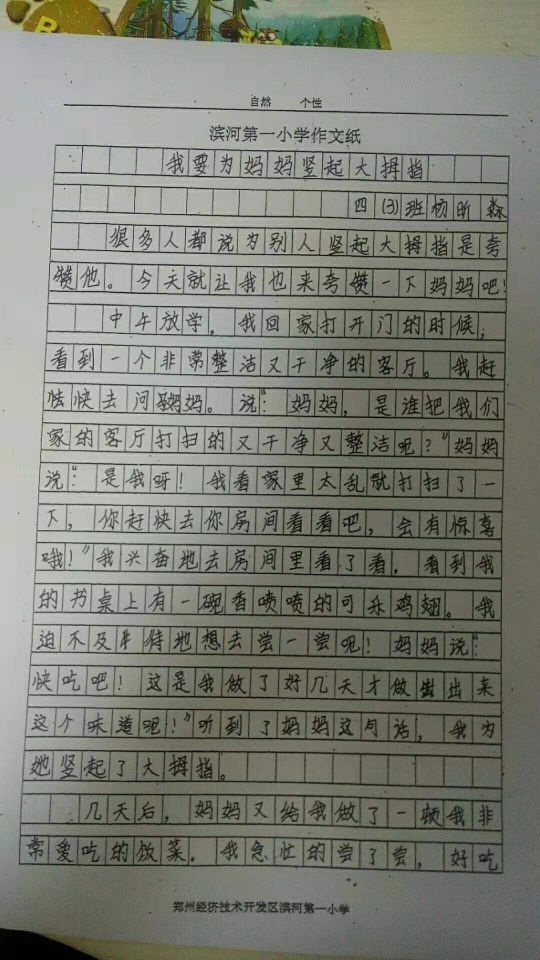 自然 个性
滨河第一小学作文纸
我要为妈妈竖起大拇指
四(3)班杨昕淼
很多人都说为别人竖起大拇指是夸
赞他。今天就让我也来夸赞一下妈妈吧!
中午放学,我回家打开门的时候,
看到一个非常整洁又干净的客厅。我赶
快去问妈妈。说:“妈妈,是谁把我们
家的客厅打扫的又干净又整洁呢?”妈妈
说:“是我呀!我看家里太乱就打扫了一
下,你赶快去你房间看看吧,会有惊喜
哦!”我兴奋地去房间里看了看,看到我
的书桌上有一碗香喷喷的可乐鸡翅。我
迫不及待地想去尝一尝呢!妈妈说:“
快吃吧!这是我做了好几天才做出来
这个味道呢!”听到了妈妈这句话,我为
她竖起了大拇指。
几天后,妈妈又给我做了一顿我非
常爱吃的饭菜。我急忙的尝了尝,好吃
郑州经济技术开发区滨河第一小学